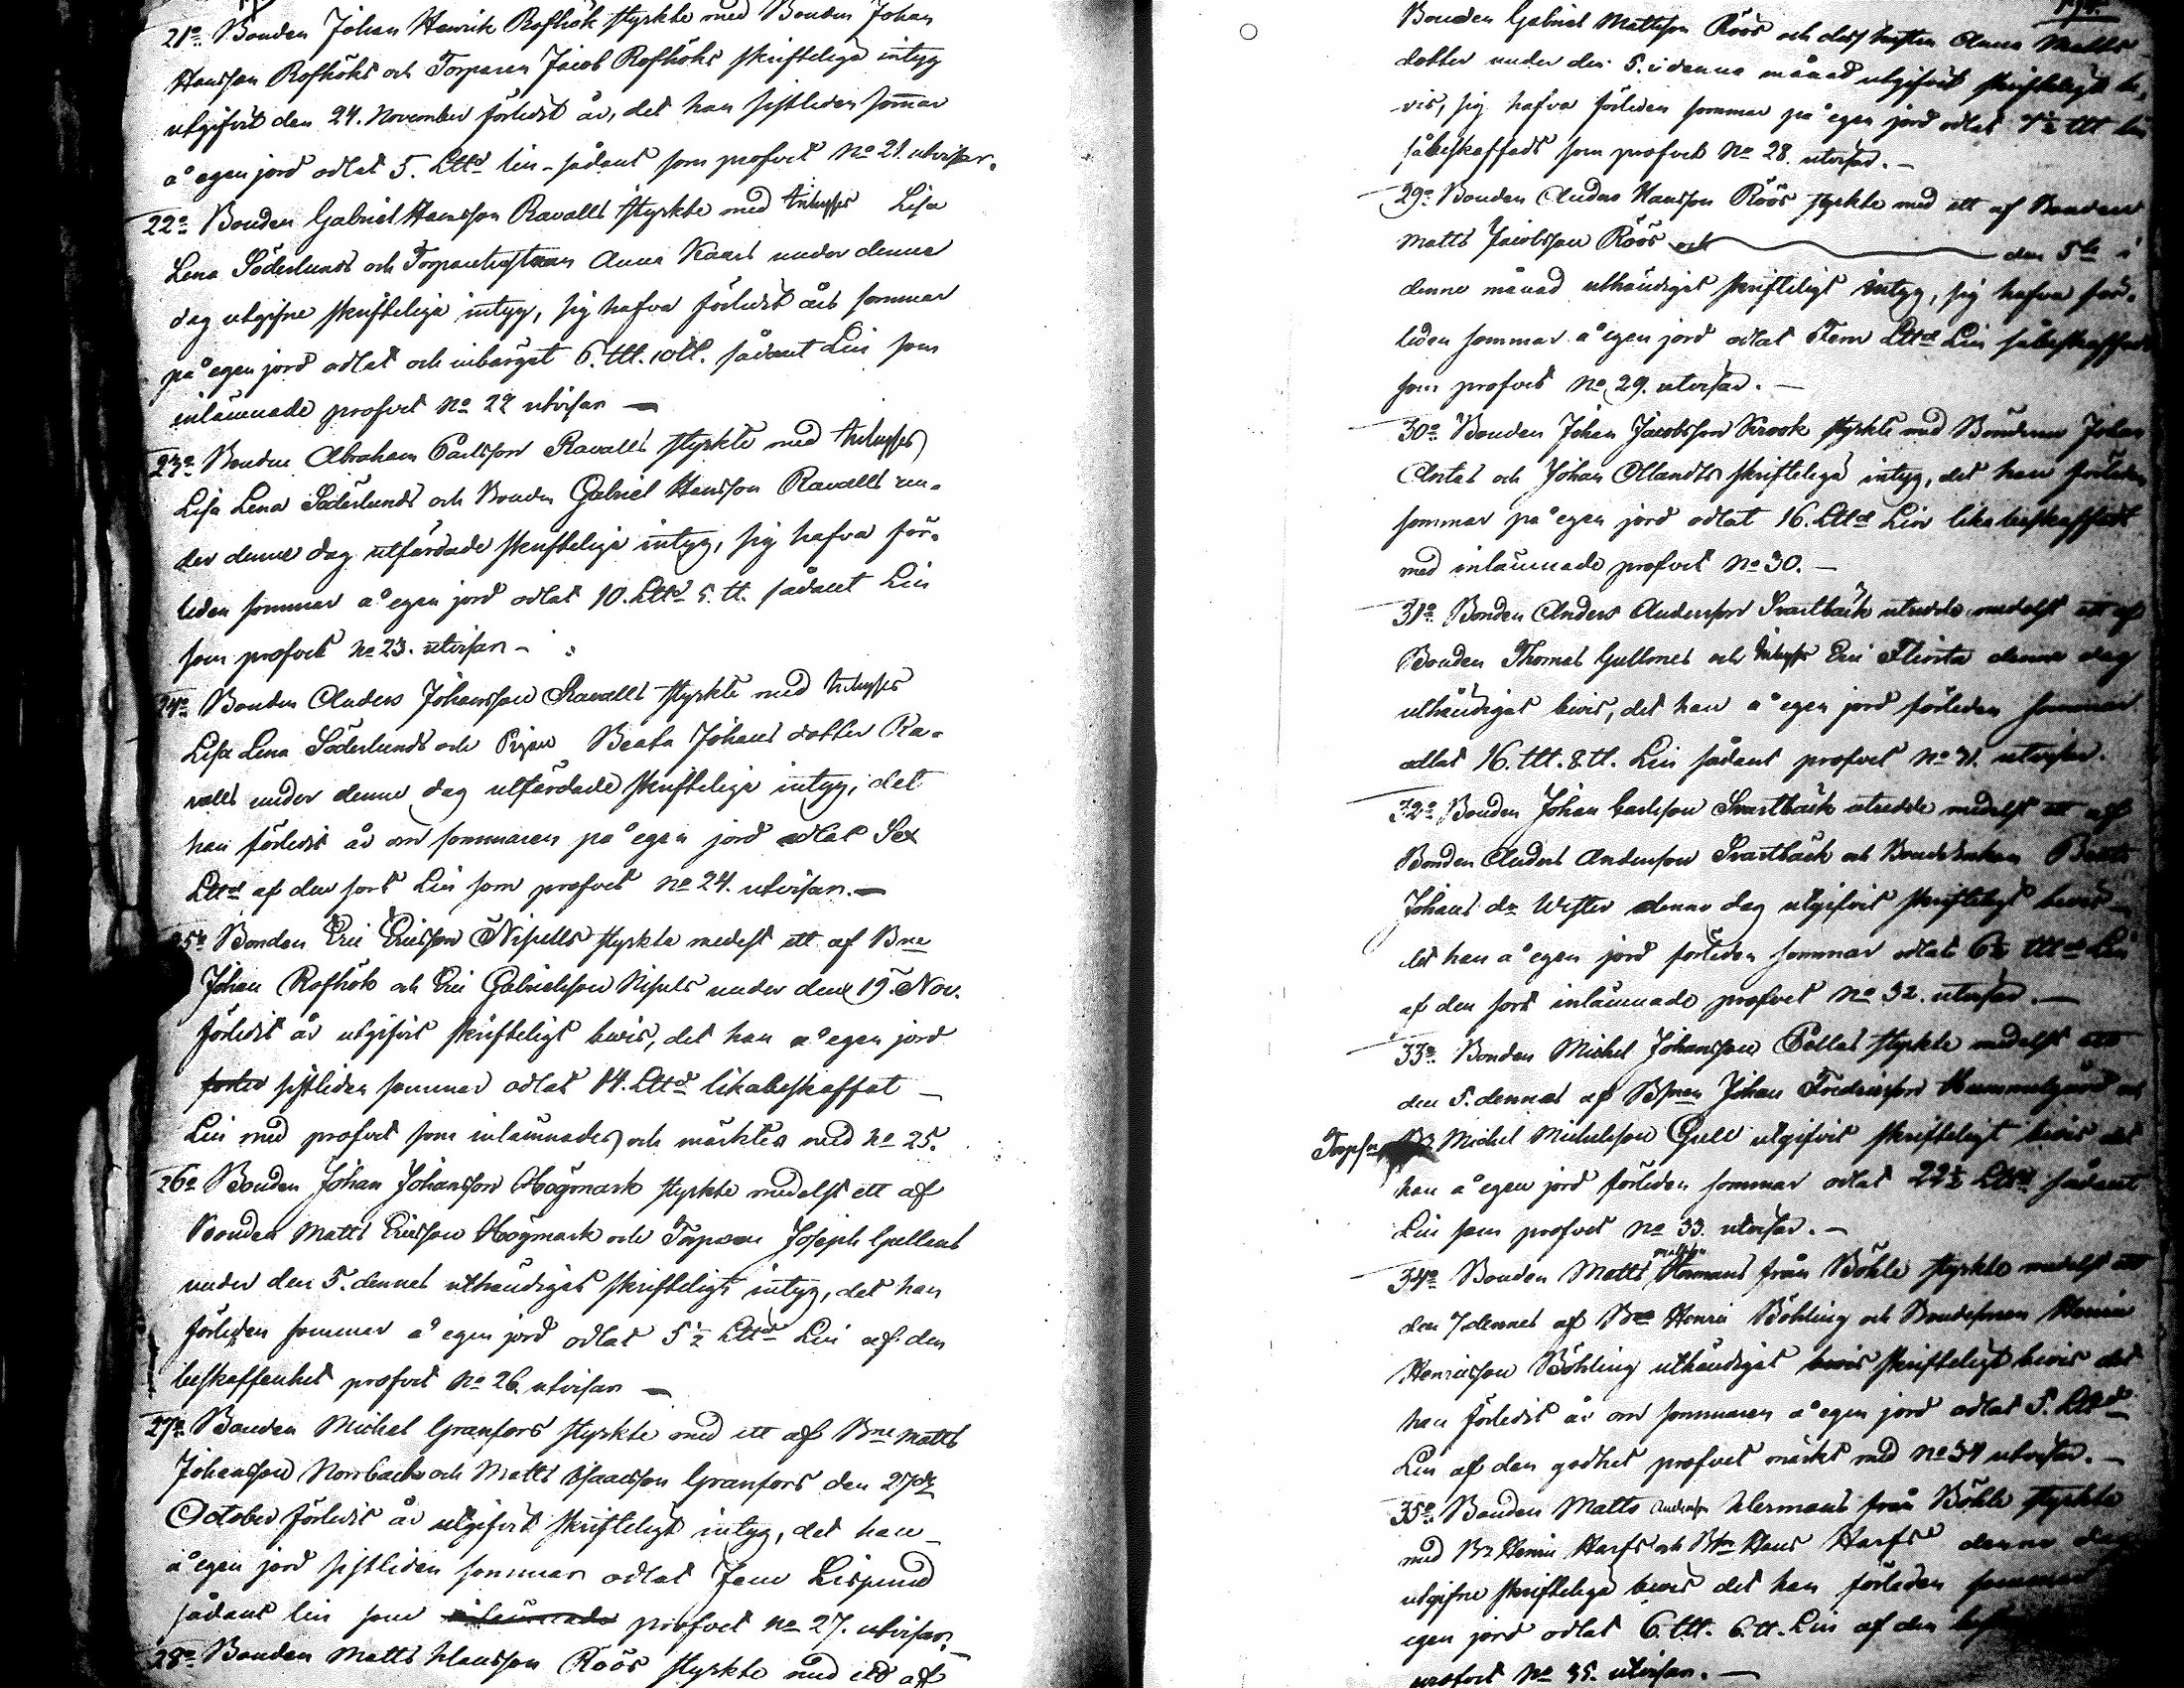 21o. Bonden Johan Henrik Rofhök styrkte med Bonden Johan
Hansson Rofhöks och Torparen Jacob Rofhöks skrifteliga intyg
utgifvit den 24. November förledit år, det han sistleden sommar
å egen jord odlat 5. Lttd lin sådant som profvet No 21. utvisar.
22o Bonden Gabriel Hansson Ravalls styrkte med Inhyses Lisa
Lena Söderlunds och Torparehustrun Anna Kaars under denne
dag utgifne skrifteliga intyg, sig hafva förledit års sommar
på egen jord odlat och inbärgat 6. ltt. 10 tt. sådant Lin som
inlämnade profvet No 22 utvisar —
23o Bonden Abraham Carlsson Ravalls styrkte med Inhyses
Lisa Lena Söderlunds och Bonden Gabriel Hansson Ravalls un-
der denne dag utfärdade skrifteliga intyg, sig hafva för-
leden sommar å egen jord odlat 10. Lttd 5. tt. sådant Lin
som profvet No 23. utvisar —
24o Bonden Anders Johansson Ravalls styrkte med Inhyses
Lisa Lena Söderlunds och Pigan Beata Johans dotter Ra-
valls under denne dag utfärdade skrifteliga intyg, det
han förledit år om sommaren på egen jord odlat Sex
Lttd af den sort Lin som profvet No 24. utvisar. —
25o Bonden Eric Ericsson Nissells styrkte medelst ett af Bne
Johan Rofhök och Eric Gabrielsson Nissels under den 19. Nov.
förledit år utgifvit skrifteligt bevis, det han å egen jord
sistleden sommar odlat 14. Lttd likabeskaffat —
Lin med profvet som inlämnades och märktes med No 25.
26o Bonden Johan Johansson Högmark styrkte medelst ett af
Bonden Matts Ericsson Högmark och Torparen Joseph Gullans
under den 5. dennes uthändigat skrifteligt intyg, det han
förleden sommar å egen jord odlat 5 1/2 Lttd Lin af den
beskaffenhet profvet No 26. utvisar —
27o Bonden Michel Granfors styrkte med ett af Bne Matts
Johansson Norrback och Matts Isaacsson Granfors den 27de
October förledit år utgifvit skrifteligt intyg, det han
å egen jord sistleden sommar odlat Fem Lispund
sådant lin som inlämnade profvet No 27. utvisar,
28o Bonden Matts Hansson Röös styrkte med ett af
Bonden Gabriel Mattsson Röös och dess hustru Anna Matts
dotter under den 5. i denna månad utgifvit skrifteligt be-
vis, sig hafva förleden sommar på egen jord odlat 7 1/2 ltt lin
såbeskaffadt som profvet No 28. utvisar. —
29o Bonden Anders Hansson Röös styrkte med ett af Bonden
Matts Jacobsson Röös och — den 5te i
denne månad uthändigat skrifteligt intyg, sig hafva för-
leden sommar å egen jord odlat Fem Lttd Lin såbeskaffadt
som profvet No 29. utvisar. —
30o Bonden Johan Jacobsson Krook styrkte med Bönderne Johan
Antas och Johan Ollandts skrifteliga intyg, det han förleden
sommar på egen jord odlat 16. Lttd Lin likabeskaffadt
med inlämnade profvet No 30. —
31o Bonden Anders Andersson Svartbäck utredde medelst ett af
Bonden Thomas Gullmes och Inhyses Eric Flinta denne dag
uthändigat bevis, det han å egen jord förleden sommar
odlat 16. ltt. 8. tt. Lin sådant profvet No 31. utvisar.
32o Bonden Johan Carlsson Svartbäck utredde medelst ett af
Bonden Anders Andersson Svartbäck och Bondehustrun
Johans dr Wester denne dag utgifvit skrifteligt bevis
det han å egen jord förleden sommar odlat 6 1/2 lttd Lin
af den sort inlämnade profvet No 32. utvisar. —
33o Bonden Michel Johansson Pellas styrkte medelst ett
den 5. dennes af Bsnen Johan Fredricsson Hammelgård och
Torpsn Michel Michelsson Gull utgifvit skrifteligt bevis det
han å egen jord förleden sommar odlat 22 1/2 Lttd sådant
Lin som profvet No 33. utvisar. —
34o Bonden Matts Mattsson Hermans från Böhle styrkte medelst ett
den 7 dennes af Bne Henric Böhling och Bondesonen Henric
Henricsson Böhling uthändigat bevis skrifteligt bevis det
han förledit år om sommaren å egen jord odlat 5. Lttd
Lin af den godhet profvet märkt med No 34 utvisar. —
35o Bonden Matts Andersson Hermans från Böhle styrkte
med Bn Henric Harfs och Bsn Hans Harfs denne dag
utgifne skrifteliga bevis det han förleden sommar
egen jord odlat 6. ltt. 6. tt. Lin af den
profvet No 35. utvisar. —